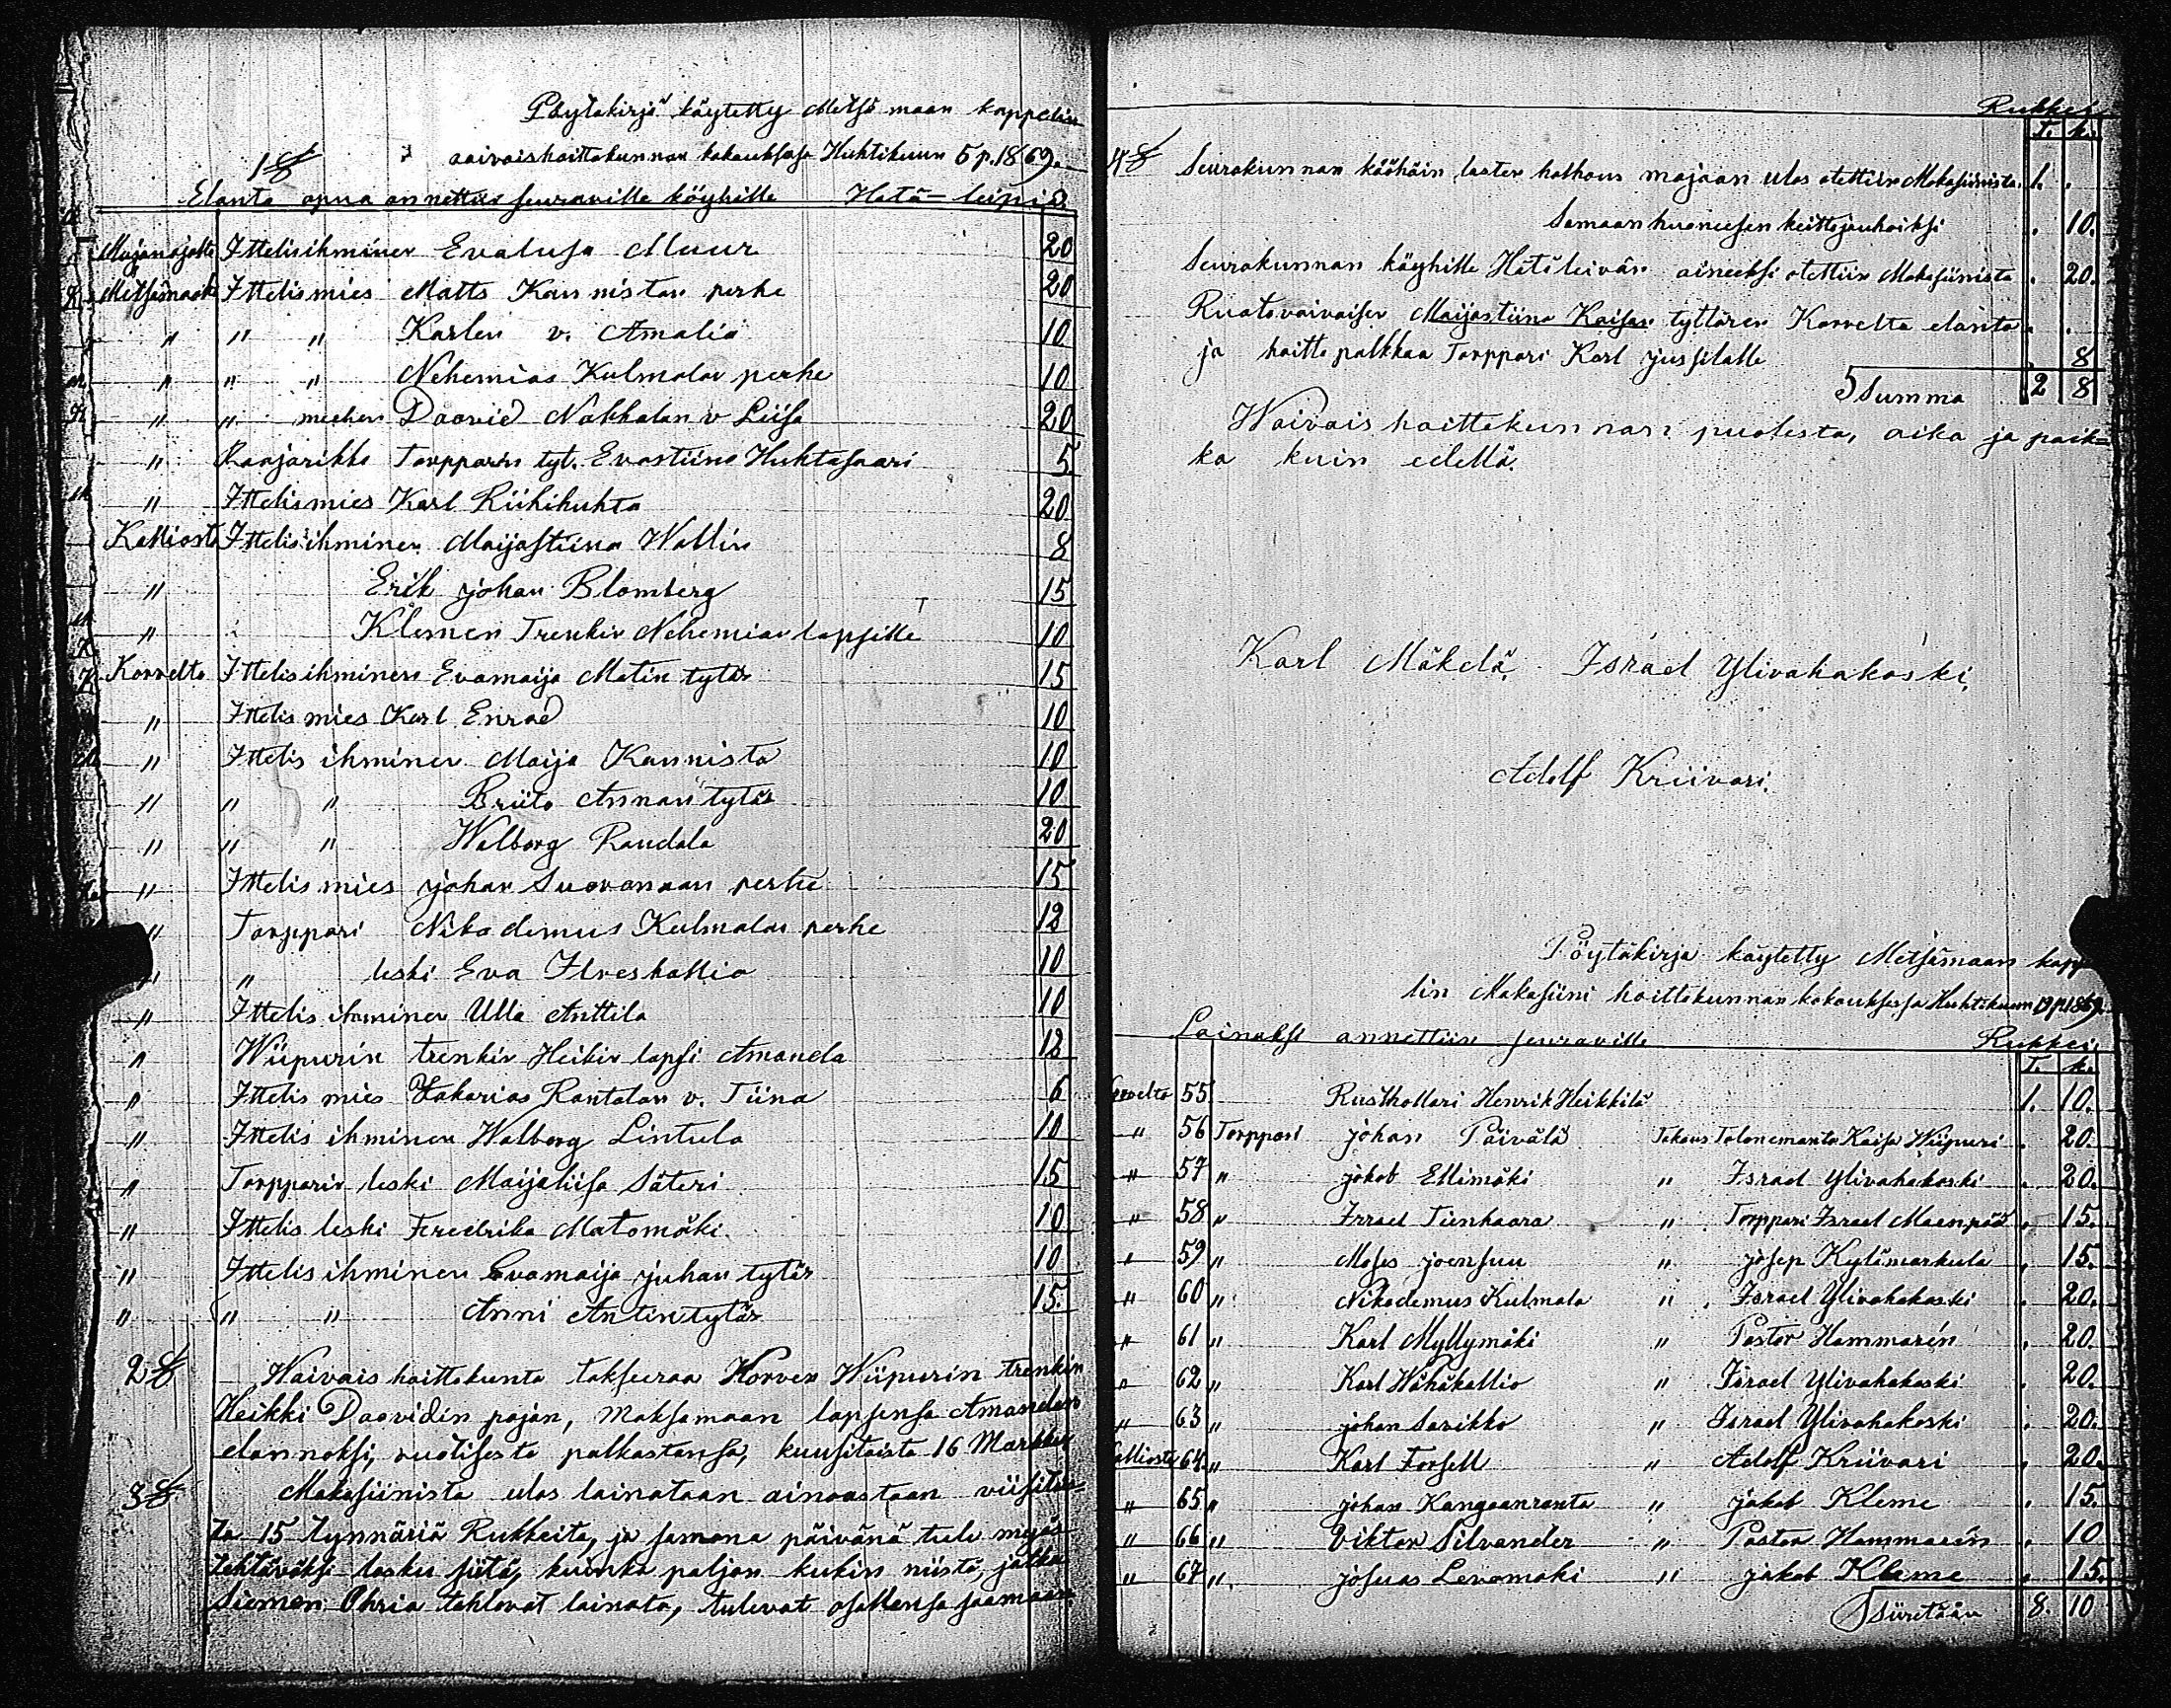 Pöytäkirja käytetty Metsämaan kappelin
1 § vaivaishoittokunnan kokouksesa Huhtikuun 5 p. 1869.
Elanto apua annettiin seuraville köyhille Hätä-leipiä.
Majanojalta Ittelisihminen Evalusa Muur 20
Metsämaalta Ittelismies Matts Kanniston perhe 20
" " " Karlen v. Amalia 10
" " " Nehemias Kulmalan perhe 10
" " miehen Daavid Nakkalan v Liisa 20
" Raajarikko Torpparin tyt. Evastiina Huhtasaari 5
" Ittelismies Karl Riihihuhta 20
Kalliosta Ittelisihminen Maijastiina Wallin 8
" Erik johan Blomberg 15
" Klemen Trenkin Nehemian lapsille 10
Korvelta Ittelisihminen Evamaija Matin tytär 15
" Ittelis mies Karl Enrad 10
" Ittelis ihminen Maija Kannisto 10
" " " Briita Annan tytär 10
" " " Walborg Randala 20
" Ittelis mies johan Suovanaan perhe 15
" Torppari Nikodemus Kulmalan perhe 12
" " leski Eva Ilveskallio 10
" Ittelis ihminen Ulla Anttila 10
" Wiipurin trenkin Heikin lapsi Amanda 12
" Ittelis mies Zakarias Rantalan v. Tiina 6
" Ittelis ihminen Walborg Lintula 10
" Torpparin leski Maijaliisa Säteri 15
" Ittelis leski Fredrika Matomäki 10
" Ittelis ihminen Evamaija juhan tytär 10
" " " Anni Antintytär 15.
2 § Waivais hoittokunta takseeraa Korven Wiipurin trenkin
Heikki Daavidin pojan, maksamaan lapsensa Amandan
elannoksi, vuotisesta palkastansa, kuusitoista 16 Markkaa
3 § Makasiinista ulos lainataan ainoastaan viisitois-
ta 15 tynnäriä Rukkeita, ja samana päivänä tulee myös
tehtäväksi lasku siitä, kuinka paljon kukin niistä, jotka
Siemen Ohria tahtovat lainata, tulevat osallensa saamaan.
Rukkei
T. k.
4 § Seurakunnan köyhäin lasten holhous majaan ulos otettiin Makasiinista 1. .
Samaan huoneesen keittojauhoiksi . 10.
Seurakunnan köyhille Hätäleivän aineeksi otettiin Makasiinista . 20.
Ruotovaivaisen Maijastiina Kaisan tyttären Korvelta elanto . .
ja hoitto palkkaa Torppari Karl jussilalle . 8
Summa 2 8
Waivais hoittokunnan puolesta, aika ja paik-
ka kuin edellä.
Karl Mäkelä. Israel Ylivahakoski.
Adolf Kriivari.
Pöytäkirja käytetty Metsämaan kappe
lin Makasiini hoittokunnan kokouksessa Huhtikuun 19 p. 1869.
Lainaksi annettiin seuraville Rukkei.
T. k.
Korvelta 55 Rusthollari Henrik Heikkilä 1. 10.
" 56 Torppari johan Päivälä Takaus Talonemänta Kaisa Wiipuri . 20.
" 57 " jakob Ellimäki " Israel Ylivahakoski . 20.
" 58 " Israel Tienhaara " Torppari Israel Maenpää . 15.
" 59 " Moses joensuu " josep Kylämarkula . 15.
" 60 " Nikodemus Kulmala " Israel Ylivahakoski . 20.
" 61 " Karl Myllymäki " Pastor Hammarén . 20.
" 62 " Karl Wähäkallio " Israel Ylivahakoski . 20.
" 63 " johan Savikko " Israel Ylivahakoski . 20.
Kalliosta 64 " Karl Forsell " Adolf Kriivari . 20.
" 65 " johan Kangaanranta " jakob Kleme . 15.
" 66 " Viktor Silvander " Pastor Hammarén . 10
" 67 " josuas Levomäki " jakob Kleme . 15.
Siiretään 8. 10